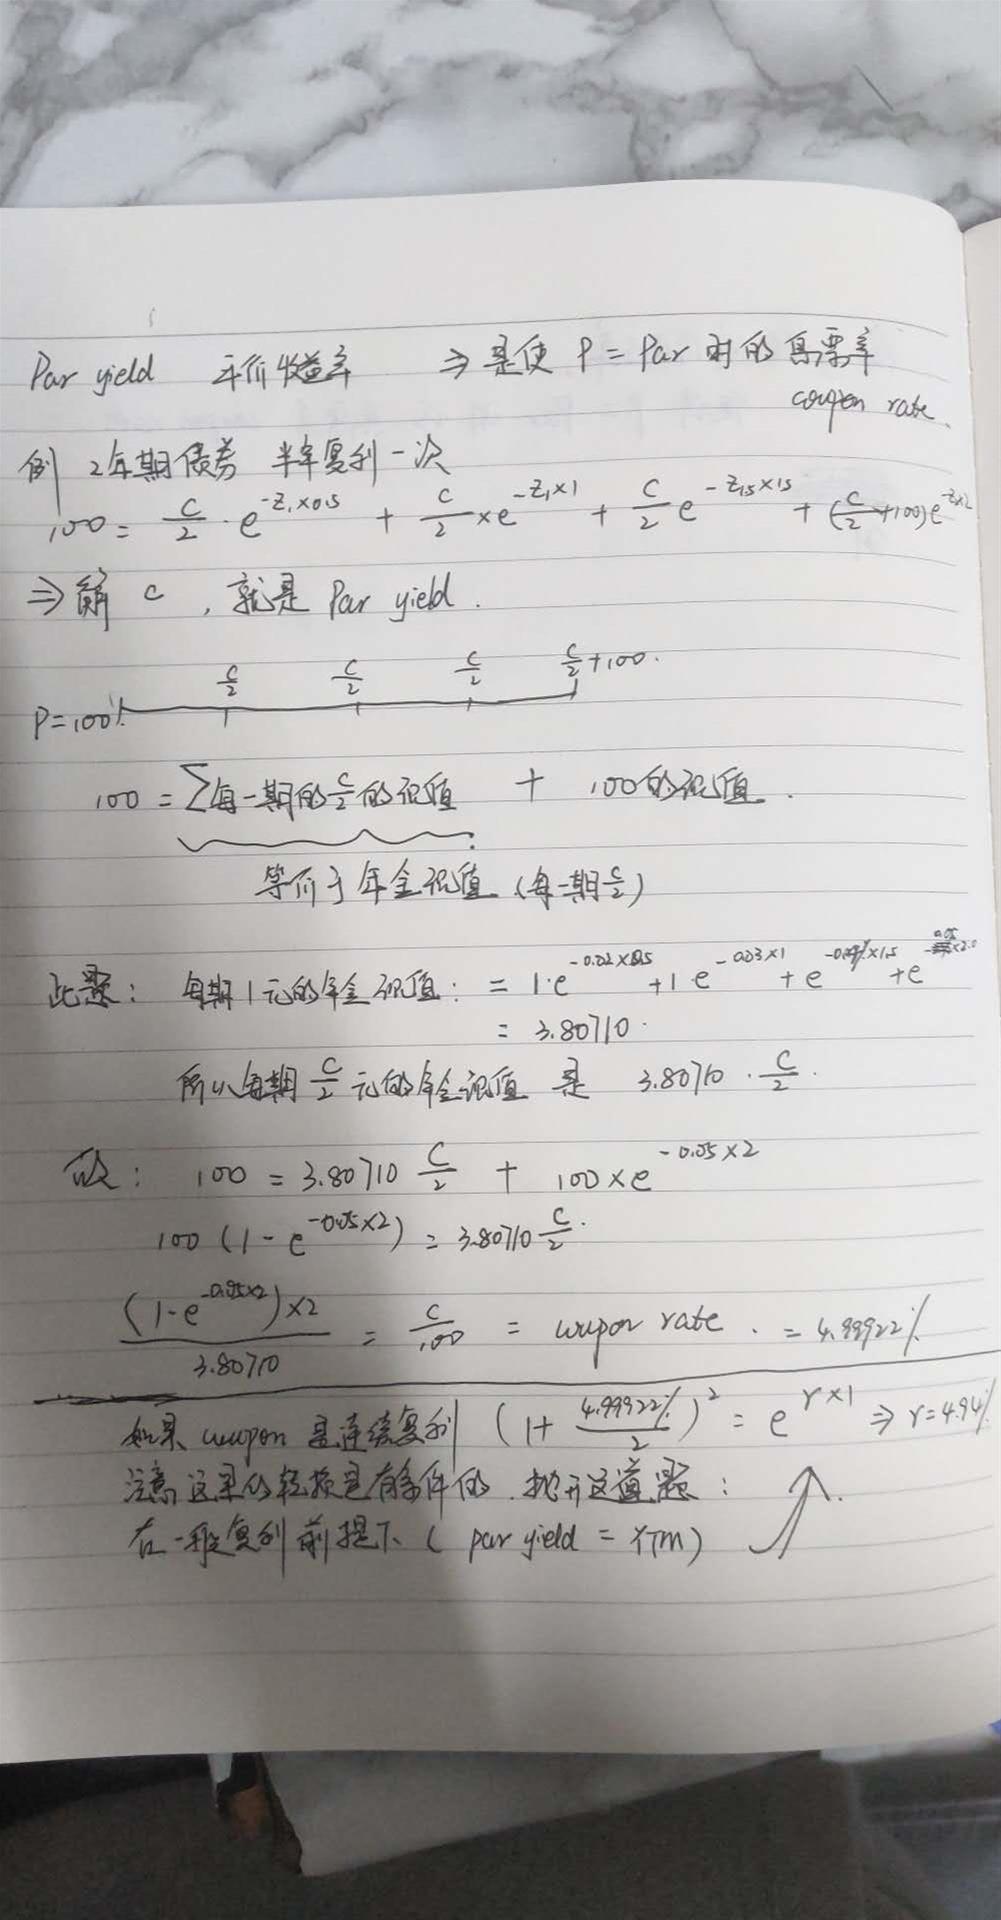 Par yield 平价收益率 ⇒ 是使 P = Par 时的 息票率
coupon rate.
例 2年期债券 半年复利一次
100 = C/2 · e^(-Z₁×0.5) + C/2 × e^(-Z₁×1) + C/2 e^(-Z₁.₅×1.5) + (C/2 +100) e^(-Z×2)
⇒ 解 C , 就是 Par yield .
C/2 C/2 C/2 C/2 +100.
P=100
100 = Σ每一期的 C/2 的现值 + 100的现值 .
等价于年金现值 (每一期 C/2)
此题: 每期1元的年金现值: = 1·e^(-0.02×0.5) + 1 e^(-0.03×1) + e^(×1.5) + e^(-0.05×2.0)
= 3.80710.
所以每期 C/2 元的年金现值 是 3.80710 · C/2 .
故: 100 = 3.80710 C/2 + 100×e^(-0.05×2)
100 (1- e^(-0.05×2)) = 3.80710 C/2 .
(1-e^(-0.05×2))×2 / 3.80710 = C/100 = coupon rate . = 4.99922%
如果 coupon 是连续复利 (1+ 4.99922%/2)² = e^(r×1) ⇒ r=4.94%
注意 这里的转换是有条件的. 抛开这道题:
在一般复利前提下 ( par yield = YTM)